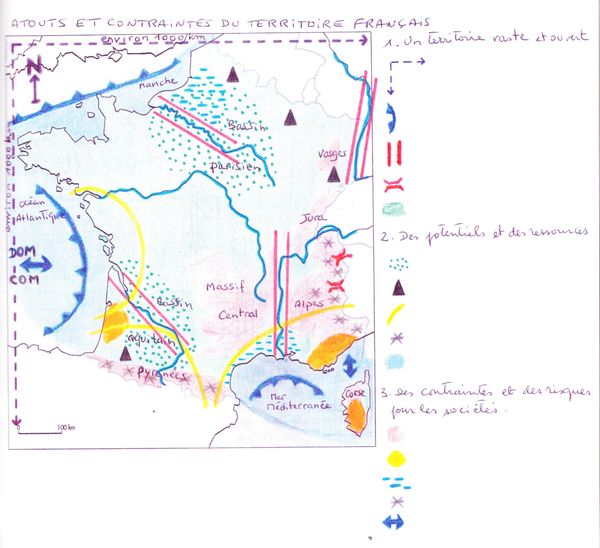 ATOUTS ET CONTRAINTES DU TERRITOIRE FRANÇAIS
environ 1000 km
1. Un territoire vaste et ouvert
N
Manche
environ 1000 km
Bassin
parisien
Vosges
océan
Atlantique
Jura
2. Des potentiels et des ressources
DOM
COM
Massif
Central
Alpes
Bassin
aquitain
Pyrénées
Mer
Méditerranée
Corse
3. Des contraintes et des risques
pour les sociétés.
100 km